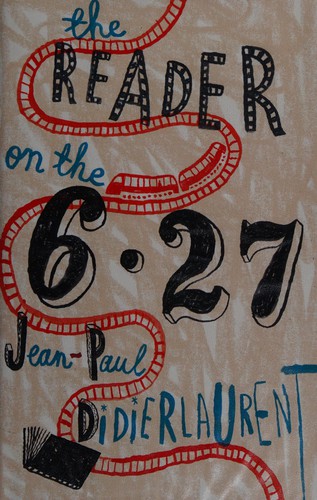 the
READER
on the
6.27
Jean-Paul
DiDiERLAURENT